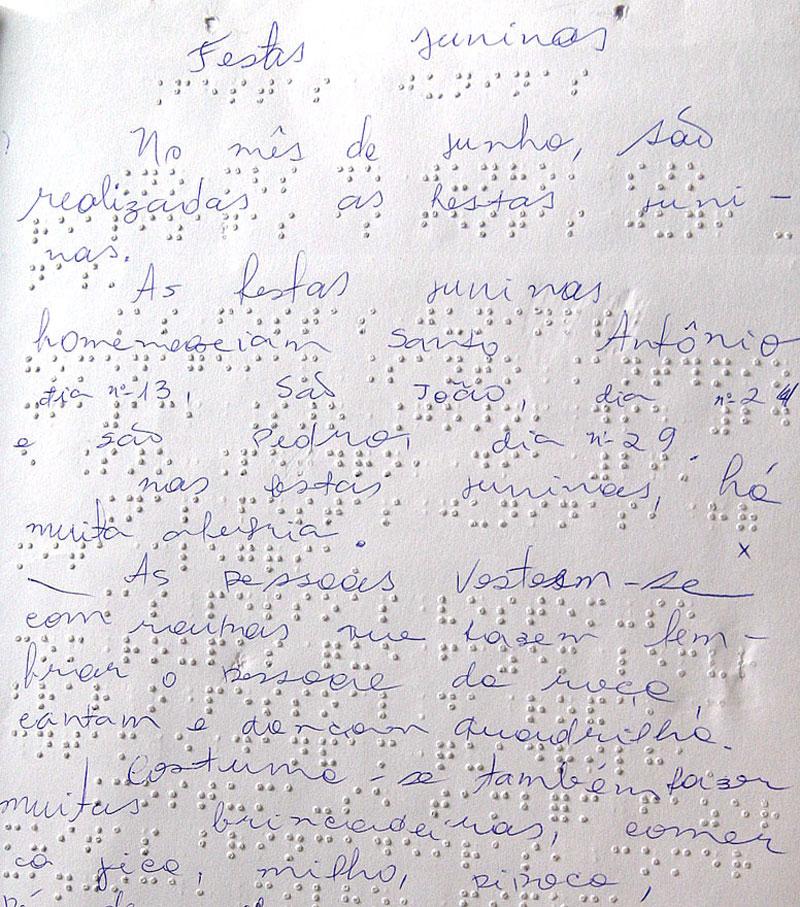 Festas juninas
No mês de junho, são
realizadas as festas juni-
nas.
As festas juninas
homenageiam Santo Antônio
dia nº 13, São João, dia nº 24
e são Pedro, dia nº 29.
nas festas juninas, há
muita alegria.
As pessoas vestem-se
com roupas que fazem lem-
brar o pessoal da roça,
cantam e dançam quadrilha.
Costuma-se também fazer
muitas brincadeiras, comer
milho, pipoca,